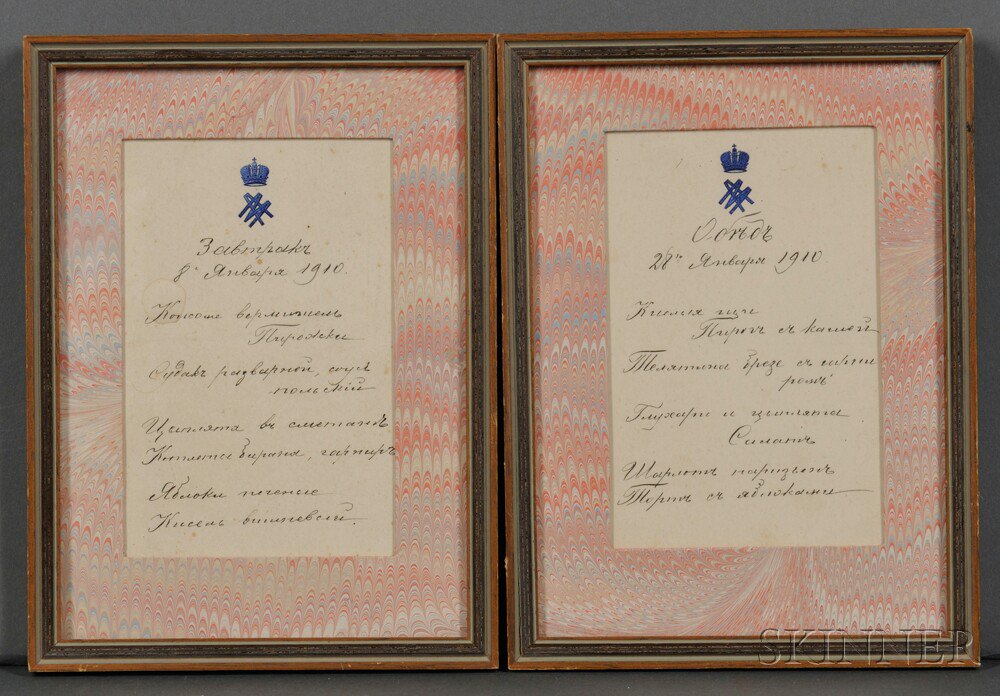 Завтракъ
8го Января 1910.
Консоме вермишель
Пирожки
Судакъ разварной, соусъ
польскій
Цыплята въ сметанѣ
Котлеты бараньи, гарниръ
Яблоки печеные
Кисель вишневый.
Обѣдъ
28го Января 1910.
Кислыя щи
Пирогъ съ кашей
Телятина брезе съ гарни
ромъ
Глухари и цыплята
Салатъ
Шарлотъ паризьенъ
Тортъ съ яблоками
SKINNER